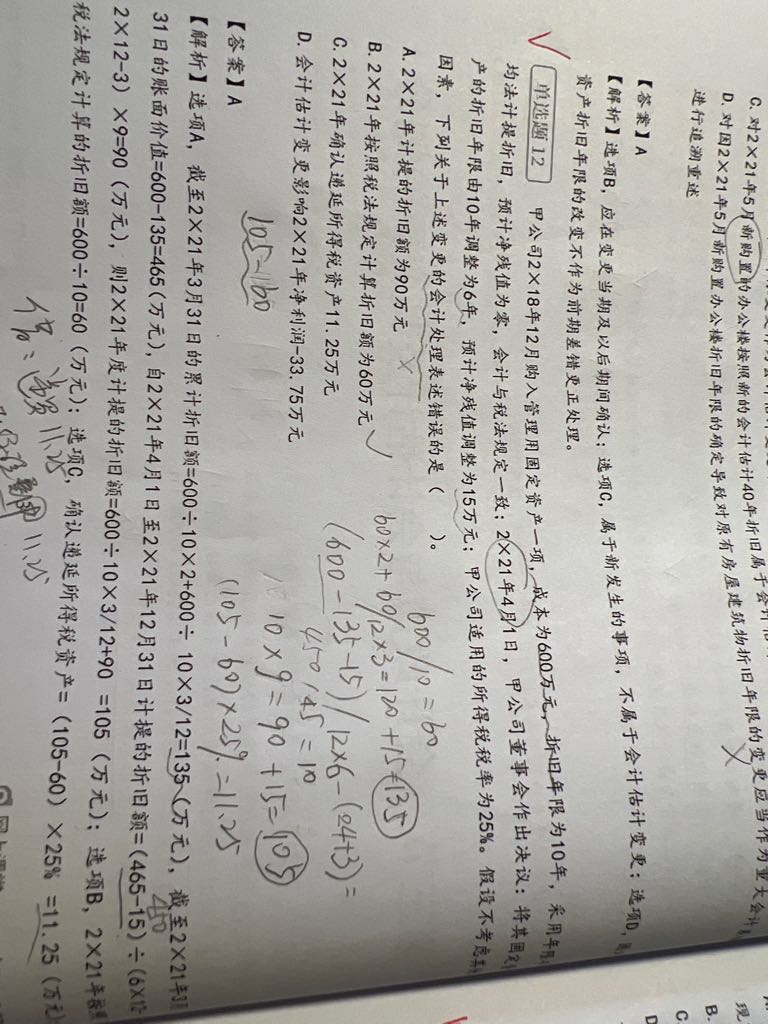 C. 对2×21年5月新购置的办公楼按照新的会计估计40年折旧属于会计
D. 对因2×21年5月新购置办公楼折旧年限的确定导致对原有房屋建筑物折旧年限的变更应当作为重大会计
进行追溯重述
【答案】A
【解析】选项B,应在变更当期及以后期间确认;选项C,属于新发生的事项,不属于会计估计变更;选项D,
资产折旧年限的改变不作为前期差错更正处理。
单选题12 甲公司2×18年12月购入管理用固定资产一项,成本为600万元,折旧年限为10年,采用年限
均法计提折旧,预计净残值为零,会计与税法规定一致;2×21年4月1日,甲公司董事会作出决议:将其固定
产的折旧年限由10年调整为6年,预计净残值调整为15万元;甲公司适用的所得税税率为25%。假设不考虑其
因素,下列关于上述变更的会计处理表述错误的是( )。
A. 2×21年计提的折旧额为90万元
B. 2×21年按照税法规定计算折旧额为60万元
C. 2×21年确认递延所得税资产11.25万元
D. 会计估计变更影响2×21年净利润-33.75万元
600/10=60
60×2+60/12×3=120+15=135
(600-135-15)/12×6-(24+3)=
450/45=10
10×9=90+15=105
(105-60)×25%=11.25
【答案】A
105-60
【解析】选项A,截至2×21年3月31日的累计折旧额=600÷10×2+600÷10×3/12=135(万元),截至2×21年3月
31日的账面价值=600-135=465(万元),自2×21年4月1日至2×21年12月31日计提的折旧额=(465-15)÷(6×12-
450
2×12-3)×9=90(万元),则2×21年度计提的折旧额=600÷10×3/12+90=105(万元);选项B,2×21年按照
税法规定计算的折旧额=600÷10=60(万元);选项C,确认递延所得税资产=(105-60)×25%=11.25(万元)
11.25
11.25
B.
C.
D